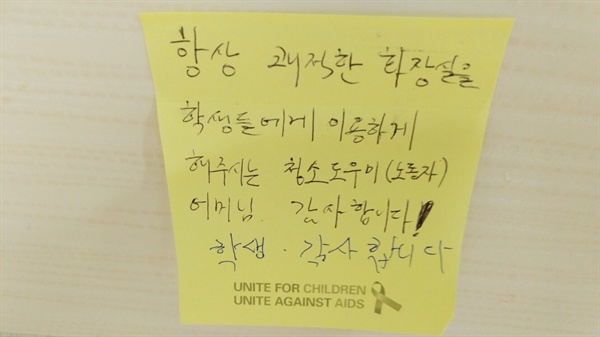 항상 쾌적한 화장실을
학생들에게 이용하게
해주시는 청소도우미(노동자)
어머님. 감사합니다!
학생. 감사합니다
UNITE FOR CHILDREN
UNITE AGAINST AIDS